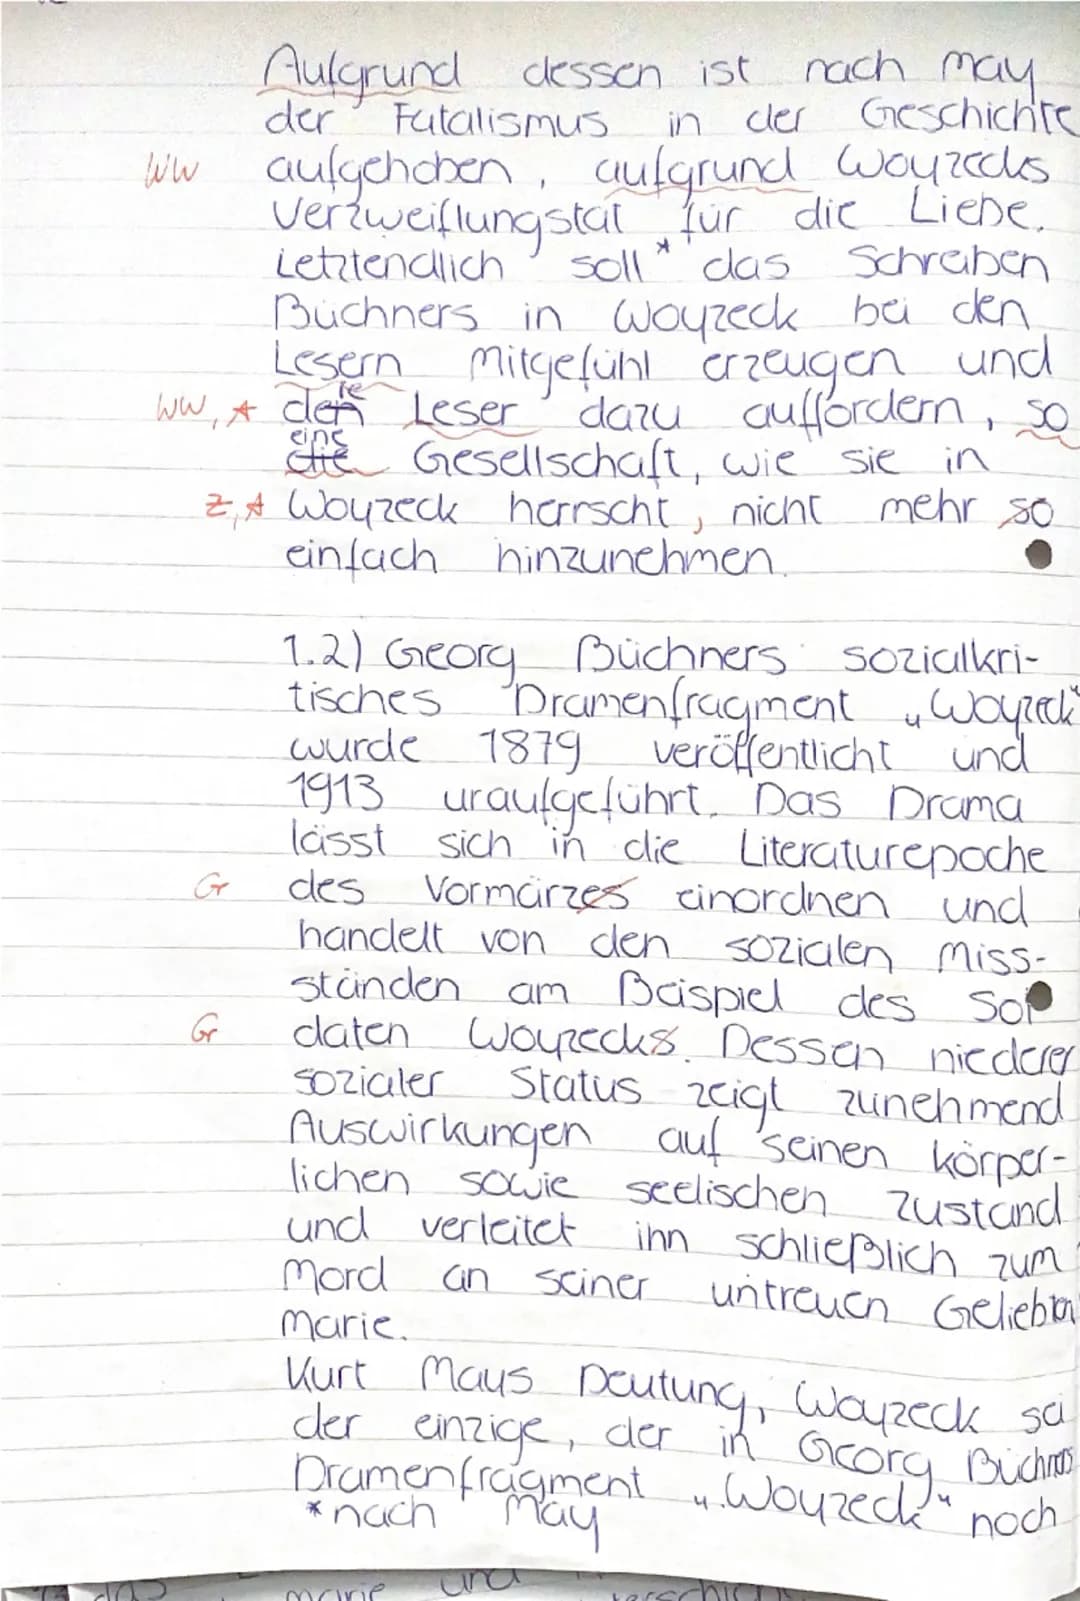 Aufgrund dessen ist nach May
der Fatalismus in der Geschichte
WW aufgehoben, aufgrund Woyzecks
Verzweiflungstat für die Liebe.
Letztendlich soll* das Schreiben
Büchners in Woyzeck bei den
Lesern Mitgefühl erzeugen und
WW, A den Leser dazu auffordern, so
eine
die Gesellschaft, wie sie in
Z, A Woyzeck herrscht, nicht mehr so
einfach hinzunehmen.
1.2) Georg Büchners sozialkri-
tisches Dramenfragment „Woyzeck"
wurde 1879 veröffentlicht und
1913 uraufgeführt. Das Drama
lässt sich in die Literaturepoche
Gr des Vormärzes einordnen und
handelt von den sozialen Miss-
ständen am Beispiel des Sol
Gr daten Woyzecks. Dessen niederer
sozialer Status zeigt zunehmend
Auswirkungen auf seinen körper-
lichen sowie seelischen Zustand
und verleitet ihn schließlich zum
Mord an seiner untreuen Geliebten
Marie.
Kurt Mays Deutung, Woyzeck sei
der einzige, der in Georg Büchners
Dramenfragment „Woyzeck" noch
*nach May
das Marie und